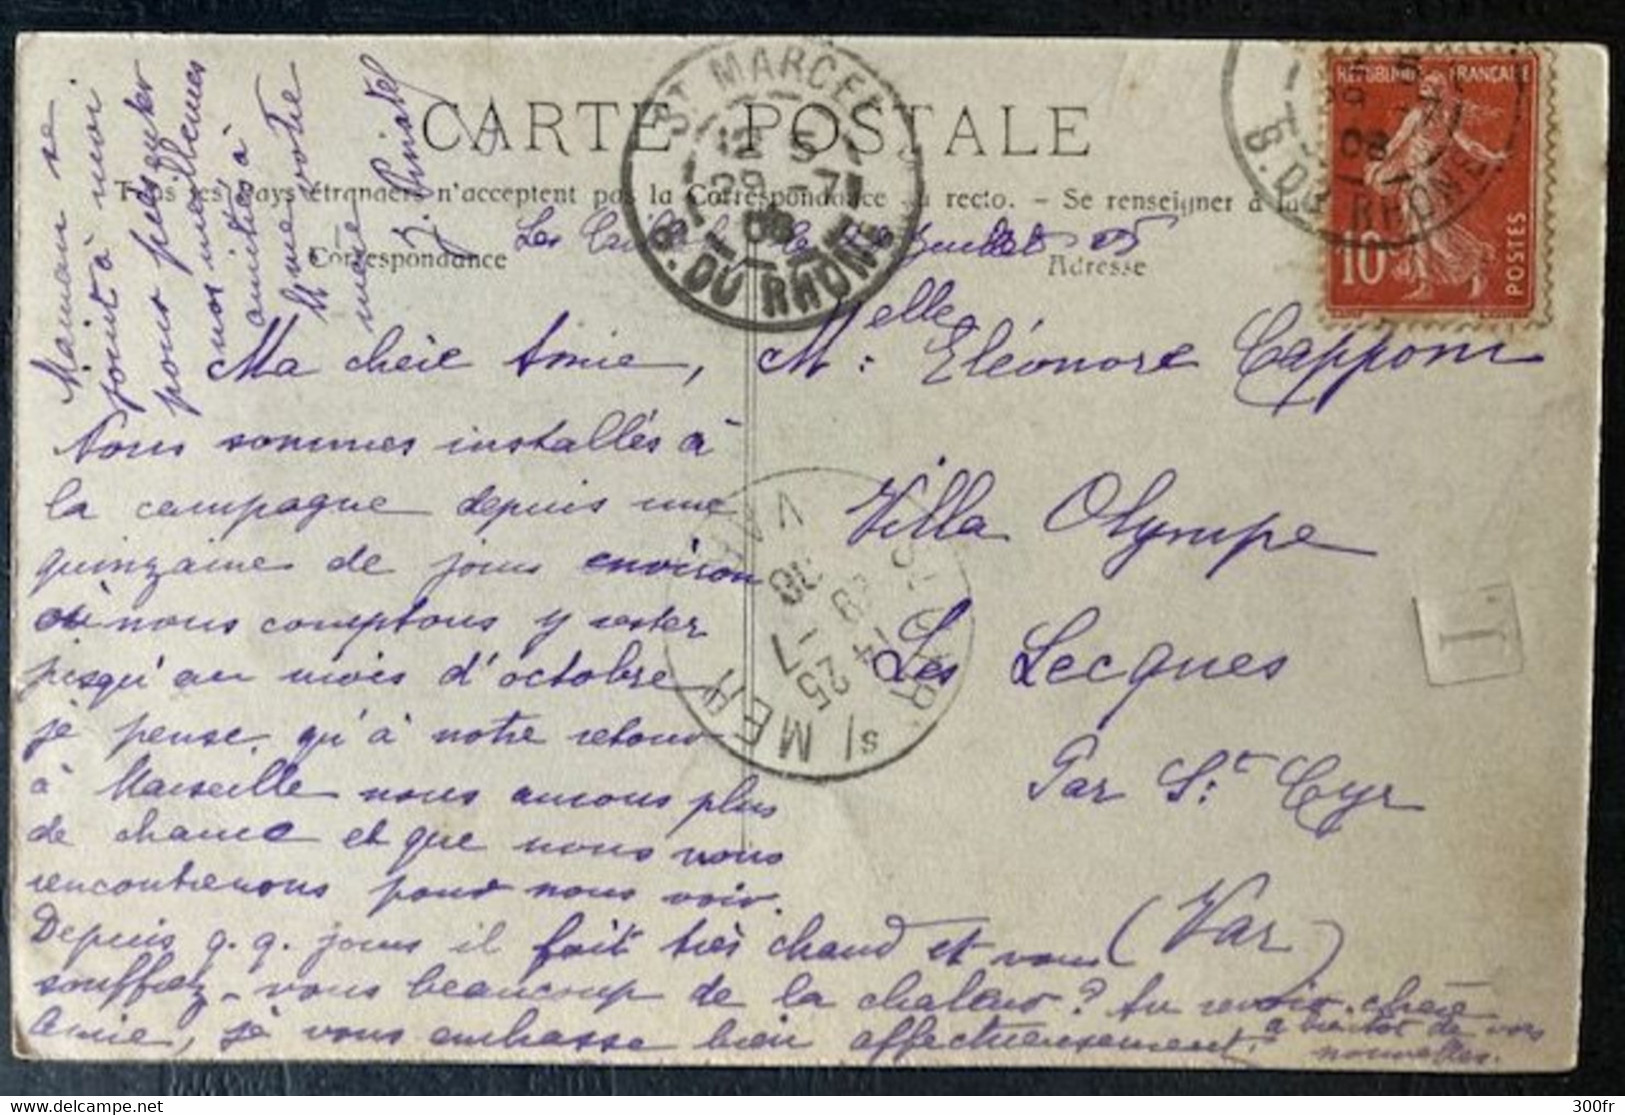 CARTE POSTALE
Tous les Pays étrangers n'acceptent pas la Correspondance au recto. - Se renseigner à la
Correspondance
Adresse
ST MARCEL
12 5
29 -7
08
B. DU RHONE
REPUBLIQUE FRANÇAISE
10c
POSTES
B. DU RHONE
Les
Ma chère Amie,
Nous sommes installés à
la campagne depuis une
quinzaine de jours environ
où nous comptons y rester
jusqu'au mois d'octobre,
je pense, qu'à notre retour
à Marseille nous aurons plus
de chance et que nous nous
rencontrerons pour nous voir.
Depuis q. q. jours il fait très chaud et vous
souffrez-vous beaucoup de la chaleur? Au revoir chère
Amie, je vous embrasse bien affectueusement.
à bientôt de vos
nouvelles.
Maman se
joint à moi
pour présenter
nos meilleures
amitiés à
Mme votre
mère
Melle
M: Eléonore Capponi
Villa Olympe
Les Lecques
Par St: Cyr
(Var)
S/MER
VAR
25 -7
08
T
300fr